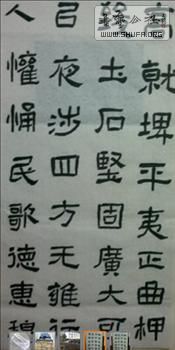 高就埤平夷正曲柙
致土石堅固廣大可
㠯夜涉四方无雍行
人懽悀民歌德惠穆
WWW.SHUFA.ORG